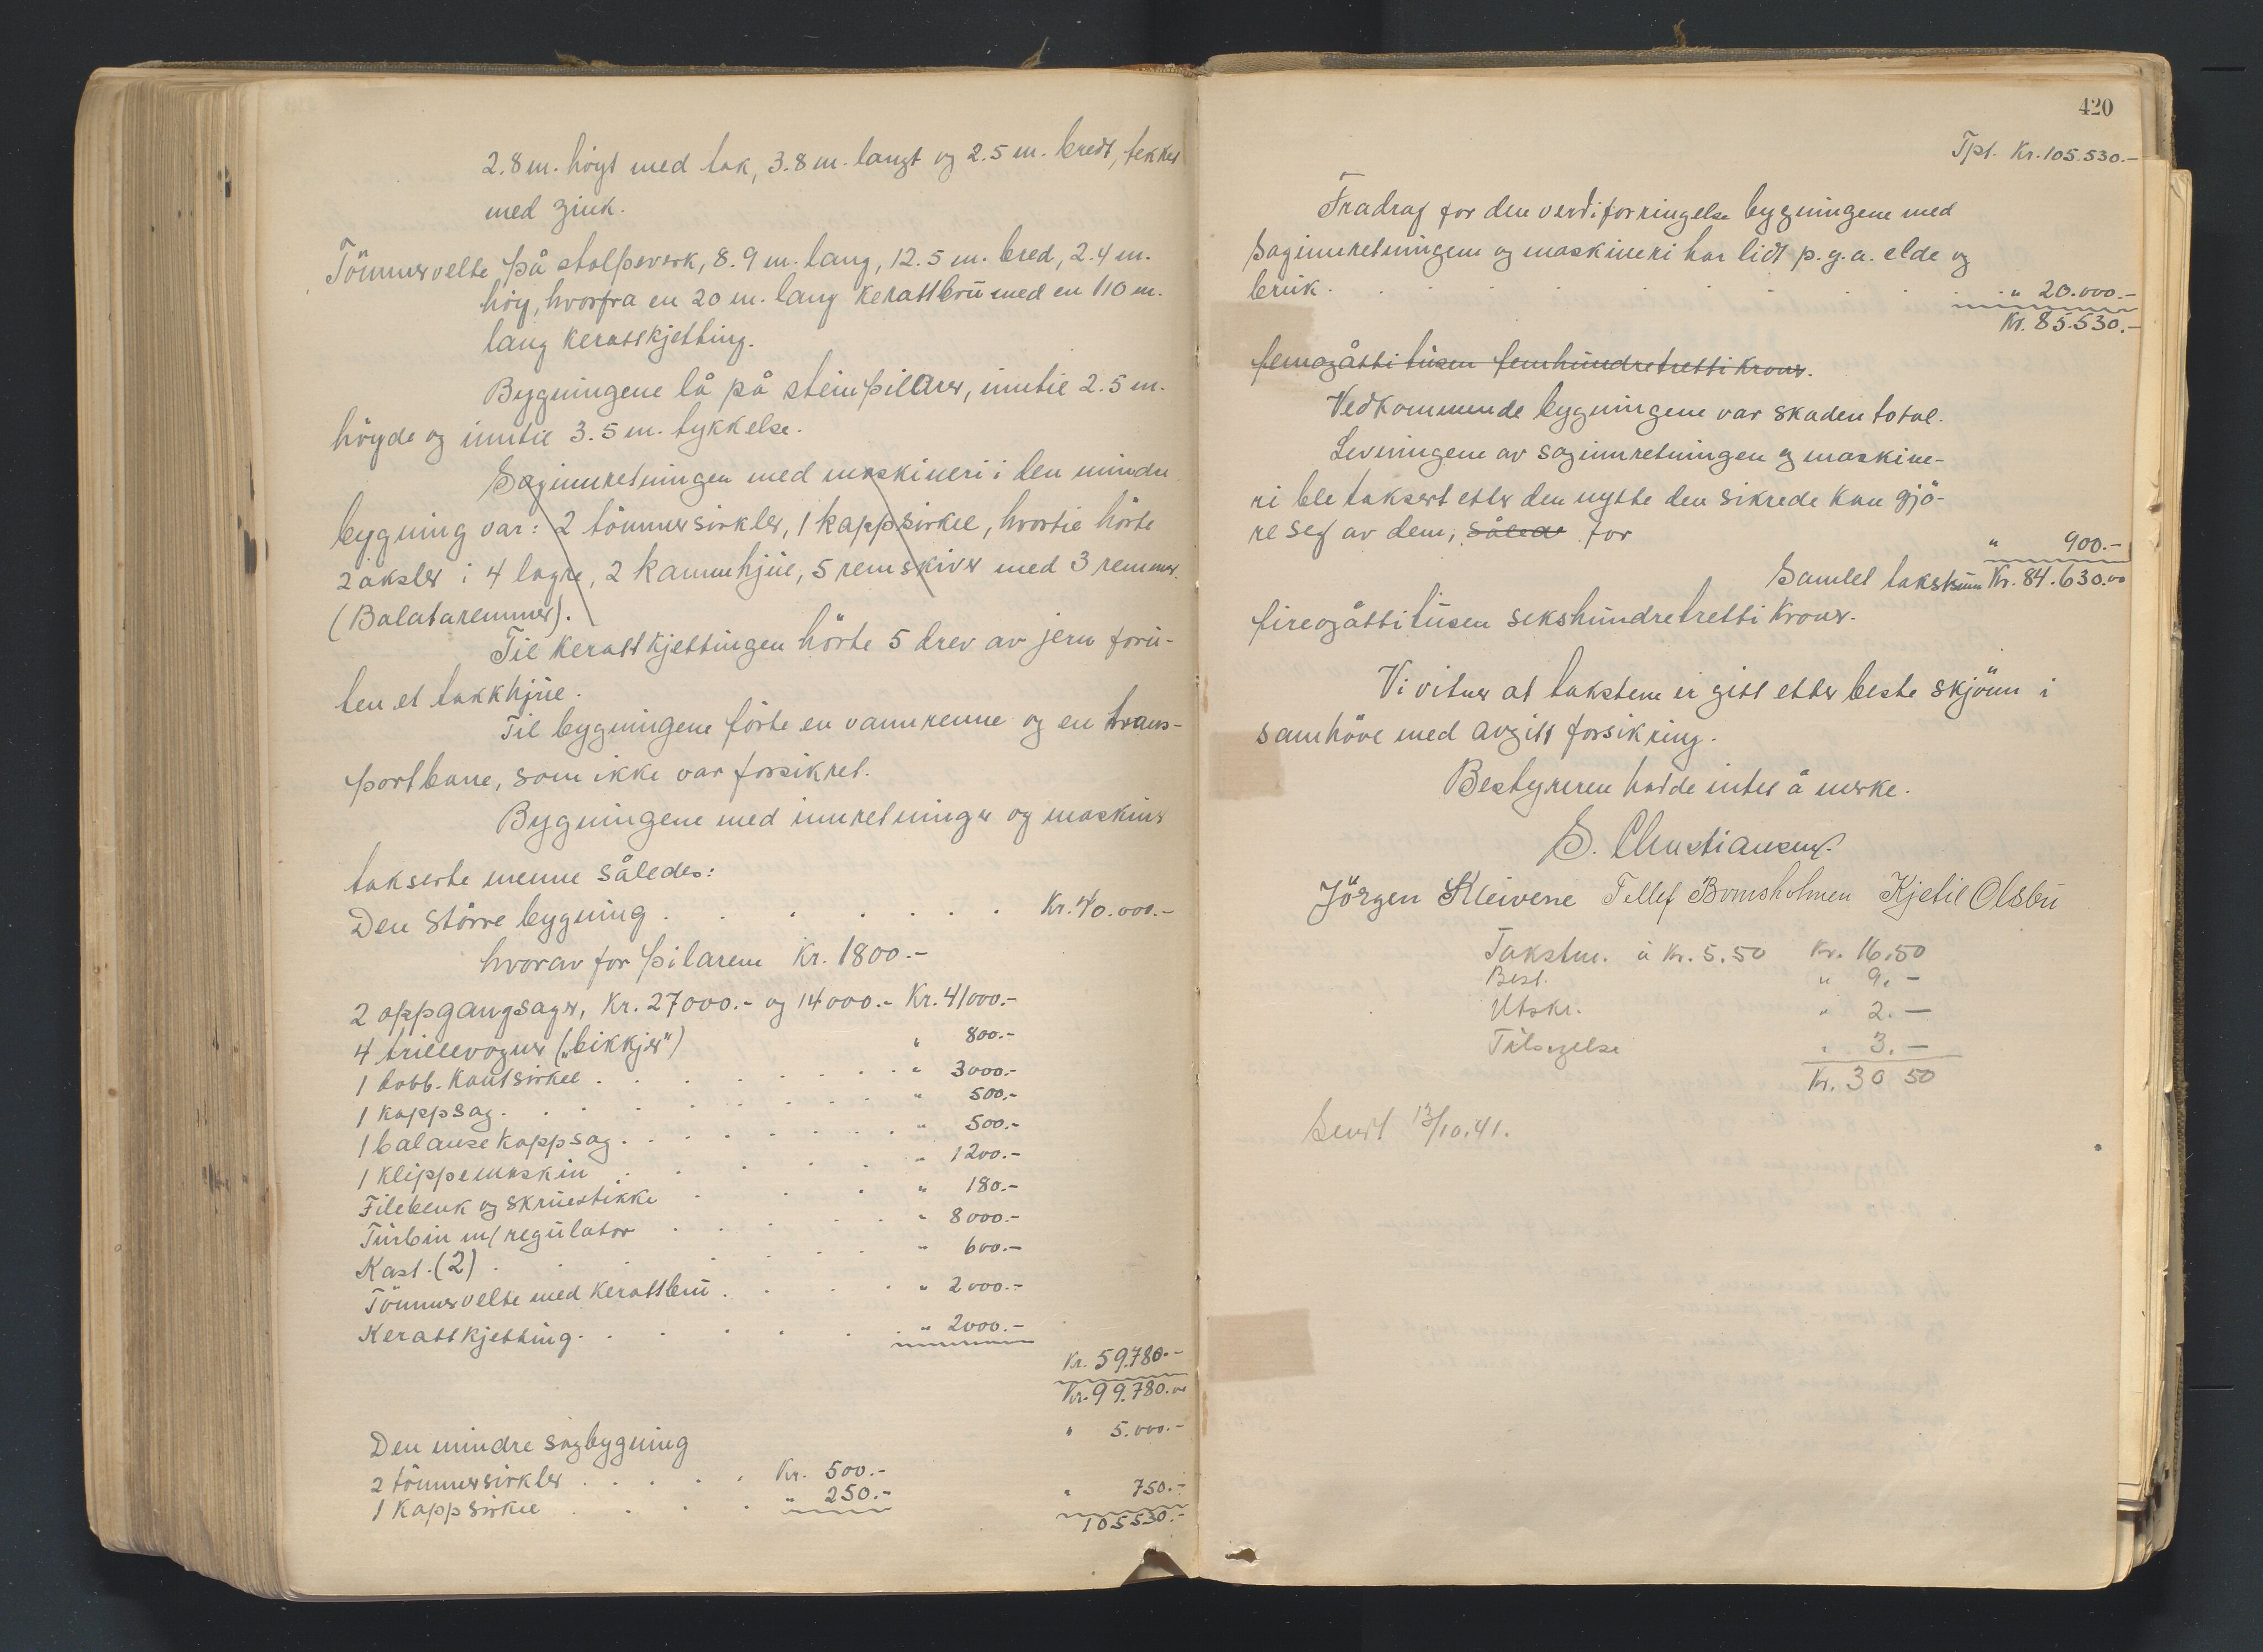 2.8 m. höyt med tak, 3.8 m. langt og 2.5 m. bredt, tekket
med zink.
Tömmervelte på stolpeverk, 8.9 m. lang, 12.5 m. bred, 2.4 m.
höy, hvorfra en 20 m. lang kerattbru med en 110 m.
lang kerattkjetting.
Bygningene lå på steinpilarer, inntil 2.5 m.
höyde og inntil 3.5 m. tykkelse.
Saginnretningen med maskineri i den mindre
bygning var: 2 tömmersirkler, 1 kappsirkel, hvortil hörte
2 aksler i 4 lagre, 2 kammhjul, 5 remskiver med 3 remmer.
(Balataremmer).
Til kerattkjettingen hörte 5 drev av jern foru-
ten et takkhjul.
Til bygningene förte en vannrenne og en trans-
portbane, som ikke var forsikret.
Bygningene med innretninger og maskiner
takserte menne således:
Den större bygning . . . . . . Kr. 40.000.-
hvorav for pilarene Kr. 1800.-
2 oppgangsager, Kr. 27000.- og 14000.- Kr. 41000.-
4 trillevogner („bikkjer") " 800.-
1 dobb. kantsirkel . . . . . . " 3000.-
1 kappsag . . . . . . " 500.-
1 balansekappsag . . . . . . " 500.-
1 klippemaskin . . . . . " 1200.-
Filebenk og skruestikke . . . " 180.-
Turbin m/ regulator . . . . . " 8000.-
Kast. (2) . . . . . . " 600.-
Tömmervelte med kerattbru . . . . " 2000.-
Kerattkjetting . . . . . . " 2000.-
Kr. 59.780.-
Kr. 99.780.00
Den mindre sagbygning " 5.000.-
2 tömmersirkler . . . . . Kr. 500.-
1 kappsirkel . . . . " 250.- " 750.-
105530.-
420
Tpt. Kr. 105.530.-
Fradrag for den verdiforringelse bygningene med
saginnretningene og maskineri har lidt p.g.a. elde og
bruk . . . . . . . " 20.000.-
Kr. 85.530.-
femogåtti tusen femhundretretti kroner.
Vedkommende bygningene var skaden total.
Levningene av saginnretningen og maskine-
ri ble taksert etter den nytte den sikrede kan gjö-
re seg av dem, således for " 900.-
Samlet takstsum Kr. 84.630.00
fireogåttitusen sekshundretretti kroner.
Vi vitner at takstene er gitt etter beste skjönn i
samhöve med avgitt forsikring.
Bestyreren hadde intet å merke.
S. Christiansen.
Jörgen Kleivene Tellef Bomsholmen Kjetil Olsbu
Takstm. à Kr. 5.50 Kr. 16.50
Best. " 9.-
Utskr. " 2.-
Tilsigelse " 3.-
Kr. 30 50
Sendt 13/10.41.